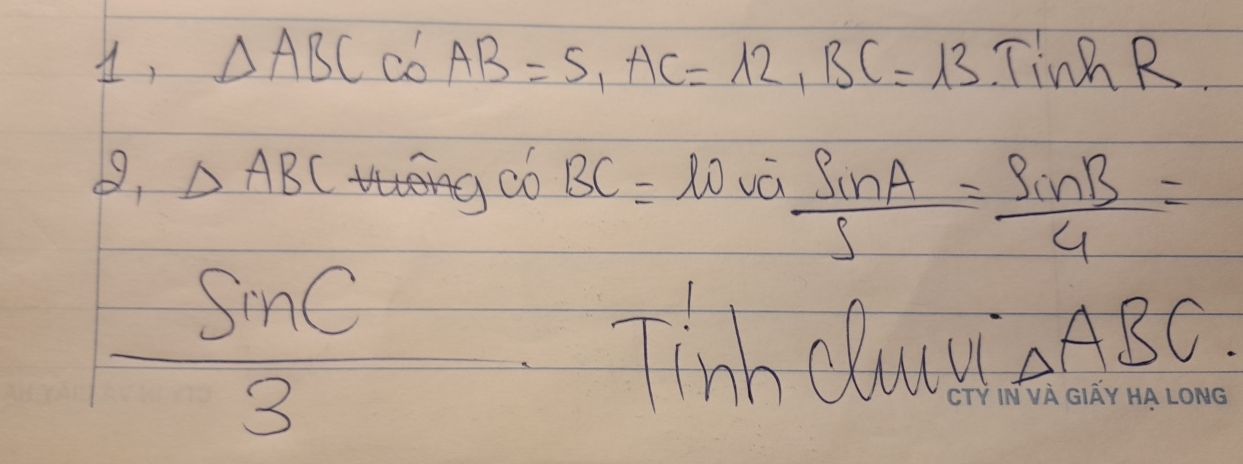 1, Δ ABC có AB = 5, AC = 12, BC = 13. Tính R.
2, Δ ABC ~~vuông~~ có BC = 10 và SinA/5 = SinB/4 =
SinC/3 . Tính chu vi Δ ABC.
CTY IN VÀ GIẤY HẠ LONG